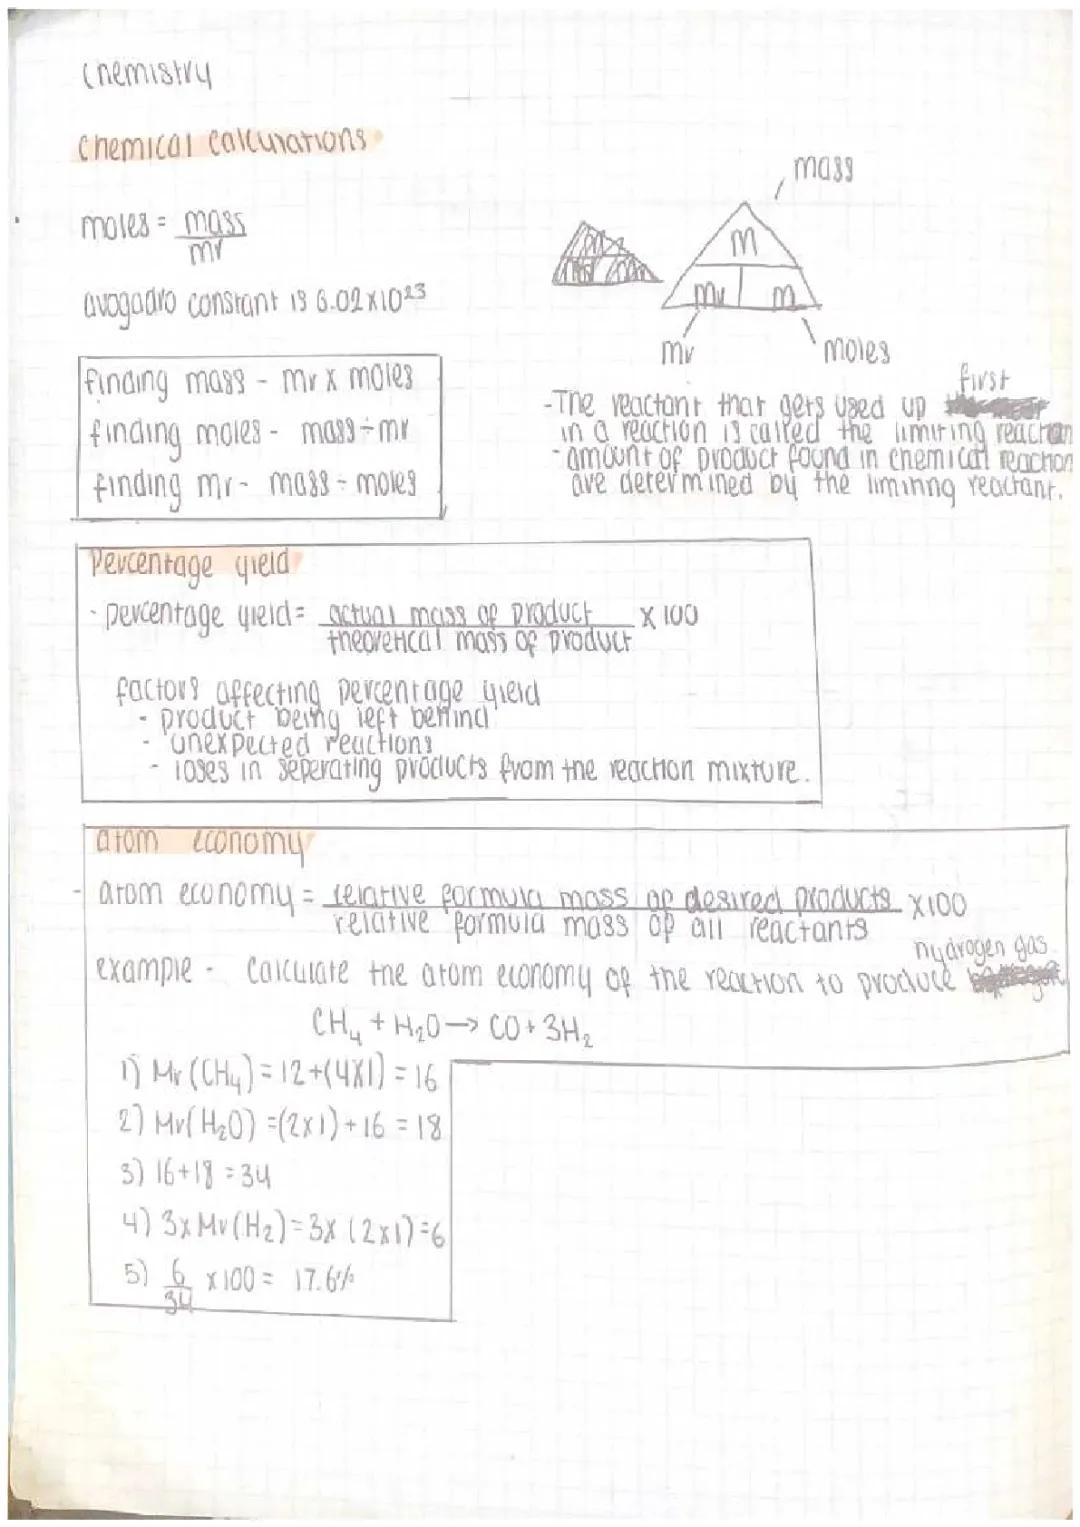 Chemistry
Chemical calculations
moles = mass
mr
avogadro constant is 6.02x10²³
finding mass - mr x moles
finding moles - mass ÷ mr
finding mr - mass ÷ moles
mass
m
mr m
mr moles
first
- The reactant that gets used up
in a reaction is called the limiting reactan
- amount of product found in chemical reaction
are determined by the limiting reactant.
Percentage yield
- percentage yield = actual mass of product x 100
theoretical mass of product
factors affecting percentage yield
- product being left behind
- unexpected reactions
- loses in seperating products from the reaction mixture.
atom economy
- atom economy = relative formula mass of desired products x100
relative formula mass of all reactants
hydrogen gas
example - calculate the atom economy of the reaction to produce
CH₄ + H₂O → CO + 3H₂
1) Mr (CH₄) = 12+(4x1) = 16
2) Mr(H₂O) =(2x1)+16 = 18
3) 16+18 = 34
4) 3x Mr (H₂) = 3x (2x1) = 6
5) 6 x100 = 17.6%
34